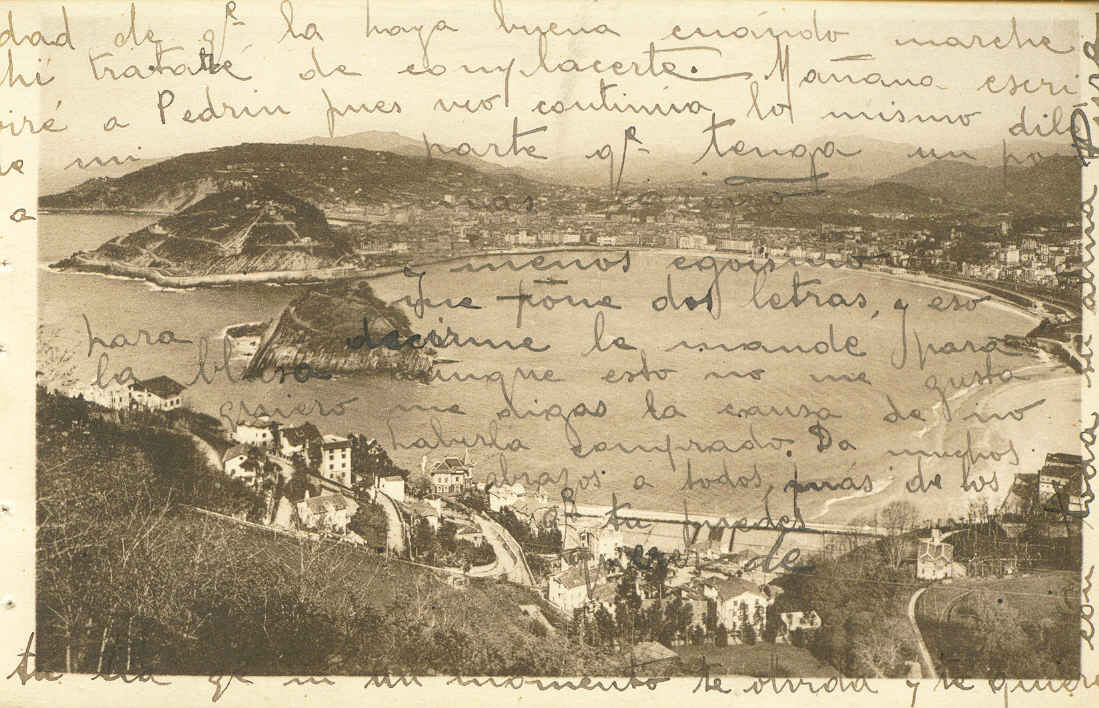 dad de qᵉ la haya buena cuándo marche
hi trataré de complacerte. Mañana escri
biré a Pedrin pues veo continúa lo mismo dile
de mi parte qᵉ tenga un po
a
y menos egoismo
que pone dos letras, y eso
para decirme le mande para
la blusa aunque esto no me gusta
quiero me digas la causa de no
haberla comprado. Da muchos
abrazos a todos, más de los
qᵉ tu puedes
de
tu tia qᵉ ni un momento te olvida y te quiere
con toda su alma